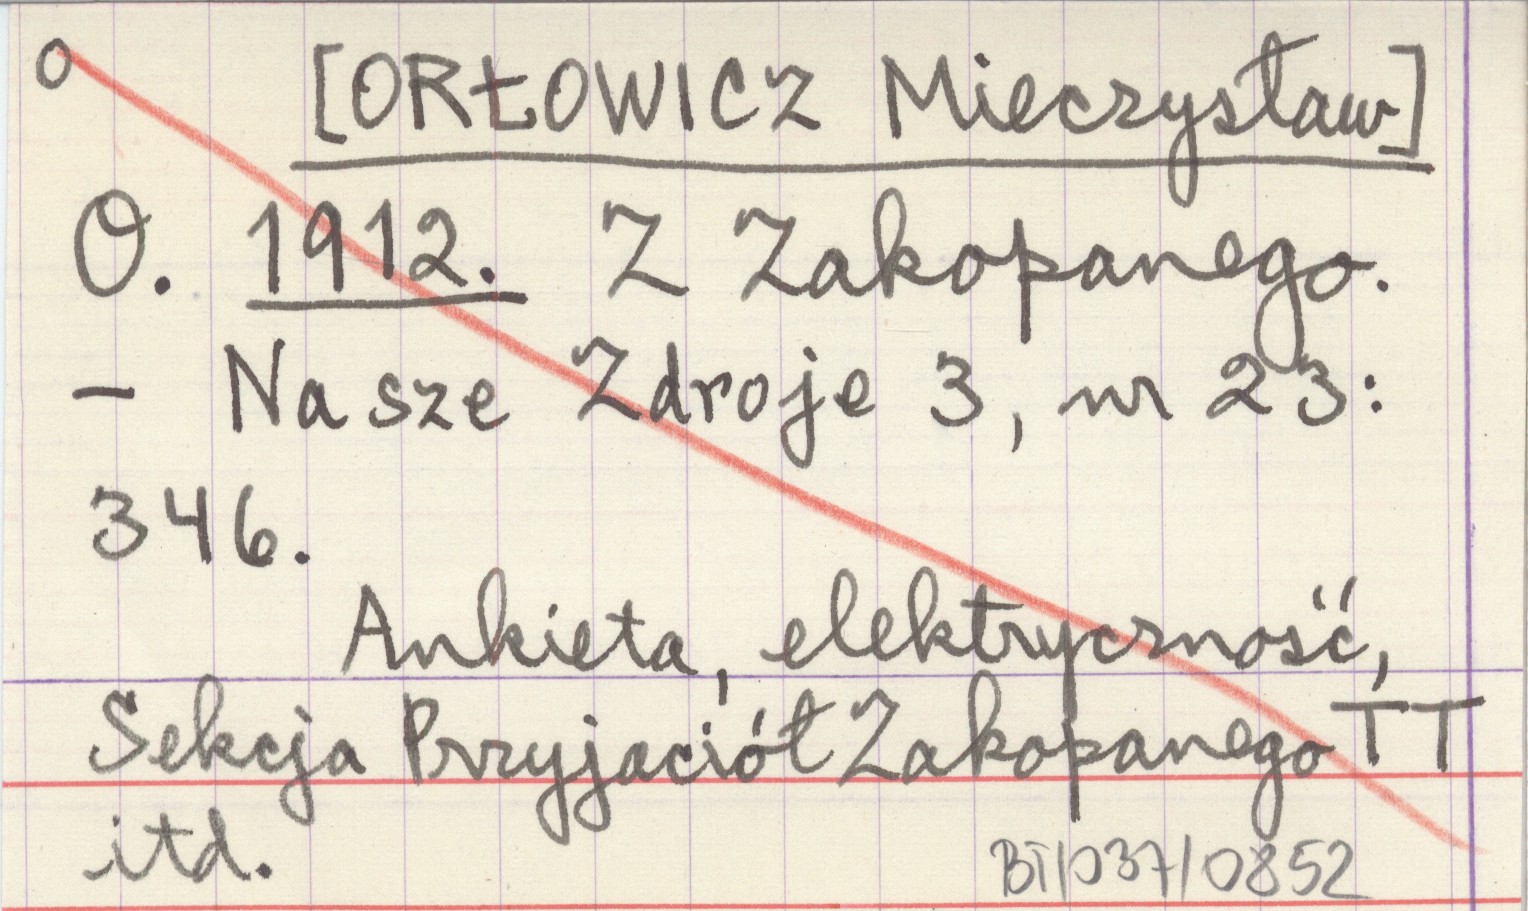 O [ORŁOWICZ Mieczysław]
O. 1912. Z Zakopanego.
– Nasze Zdroje 3, nr 23:
346.
Ankieta, elektryczność,
Sekcja Przyjaciół Zakopanego TT
itd.
BT/037/0852